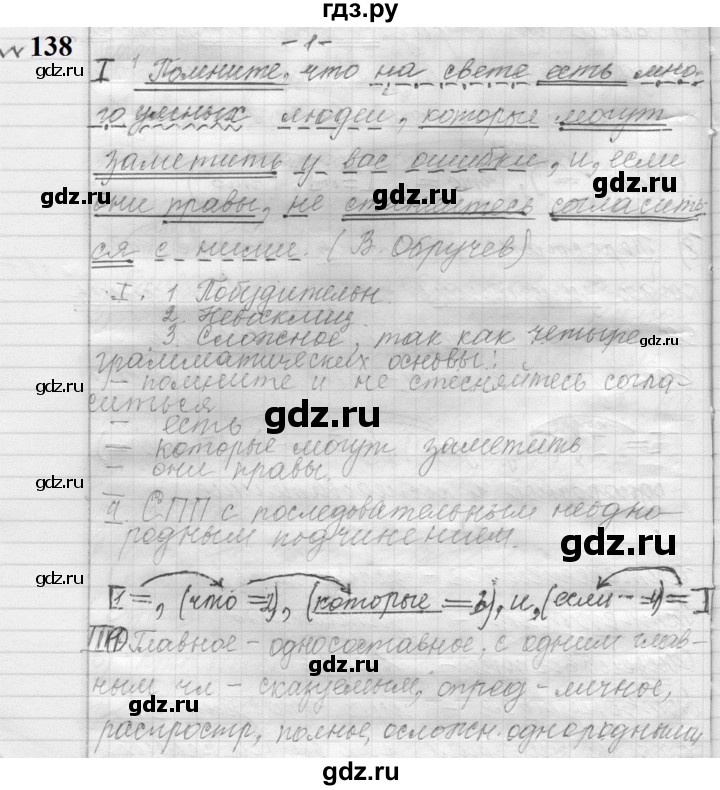 гдз.ру
№ 138
- 1 -
I 1 Помните, что на свете есть мно-
го умных людей, которые могут
заметить у вас ошибки, и, если
они правы, не стесняйтесь согласить
ся с ними. (В. Обручев)
I. 1 Побудительн.
2. Невосклиц.
3 Сложное, так как четыре
грамматических основы:
- помните и не стесняйтесь согла-
ситься
- есть
= которые могут заметить
- они правы.
II СПП с последовательным неодно
родным подчинением.
I 1 =, (что = 2), (которые = 3), и, (если ... 4) = I
III 1) Главное - односоставное, с одним глав-
ным чл - сказуемым, опред - личное,
распростр, полное, осложн. однородными
gdz.ru
gdz.ru
gdz.ru
gdz.ru
gdz.ru
gdz.ru
gdz.ru
gdz.ru
gdz.ru
gdz.ru
gdz.ru
gdz.ru
gdz.ru
gdz.ru